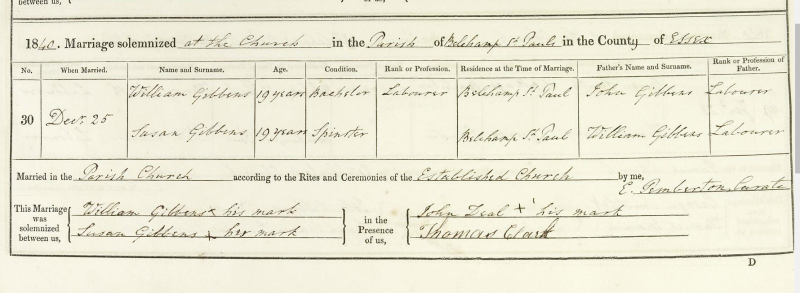 between us,
of us,
1840. Marriage solemnized at the Church in the Parish of Belchamp St Pauls in the County of Essex
No. When Married. Name and Surname. Age. Condition. Rank or Profession. Residence at the Time of Marriage. Father's Name and Surname. Rank or Profession of Father.
William Gibbens 19 years Bachelor Labourer Belchamp St Paul John Gibbens Labourer
30 Decr. 25
Susan Gibbens 19 years Spinster Belchamp St Paul William Gibbens Labourer
Married in the Parish Church according to the Rites and Ceremonies of the Established Church by me,
E. Pemberton, Curate
This Marriage was solemnized between us,
William Gibbens x his mark
Susan Gibbens x her mark
in the Presence of us,
John Deal + his mark
Thomas Clark
D